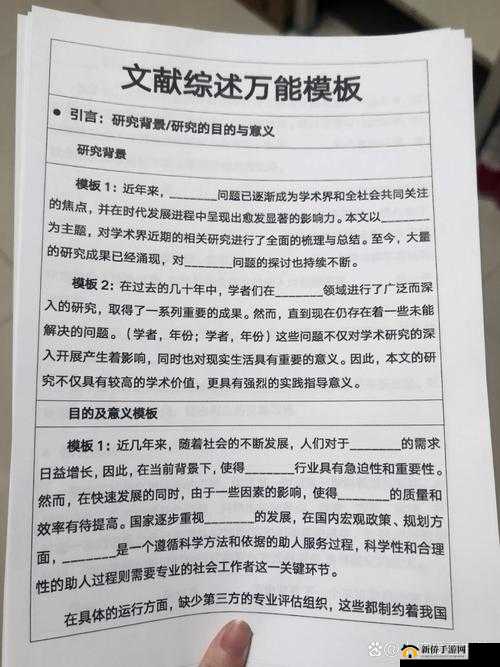 文献综述万能模板
● 引言：研究背景/研究的目的与意义
研究背景
模板 1：近年来，________问题已逐渐成为学术界和全社会共同关注
的焦点，并在时代发展进程中呈现出愈发显著的影响力。本文以________
为主题，对学术界近期的相关研究进行了全面的梳理与总结。至今，大量
的研究成果已经涌现，对________问题的探讨也持续不断。
模板 2：在过去的几十年中，学者们在________领域进行了广泛而深
入的研究，取得了一系列重要的成果。然而，直到现在仍存在着一些未能
解决的问题。（学者，年份；学者，年份）这些问题不仅对学术研究的深
入开展产生着影响，同时也对现实生活具有重要的意义。因此，本文的研
究不仅具有较高的学术价值，更具有强烈的实践指导意义。
目的及意义模板
模板 1：近几年来，随着社会的不断发展，人们对于________的需求
日益增长，因此，在当前背景下，使得________行业具有急迫性和重要性。
然而，在快速发展的同时，由于一些因素的影响，使得________的质量和
效率有待提高。国家逐步重视________的发展，在国内宏观政策、规划方
面，________是一个遵循科学方法和依据的助人服务过程，科学性和合理
性的助人过程则需要专业的社会工作者这一关键环节。
在具体的运行方面，缺少第三方的专业评估组织，这些都制约着我国
新侨手游网